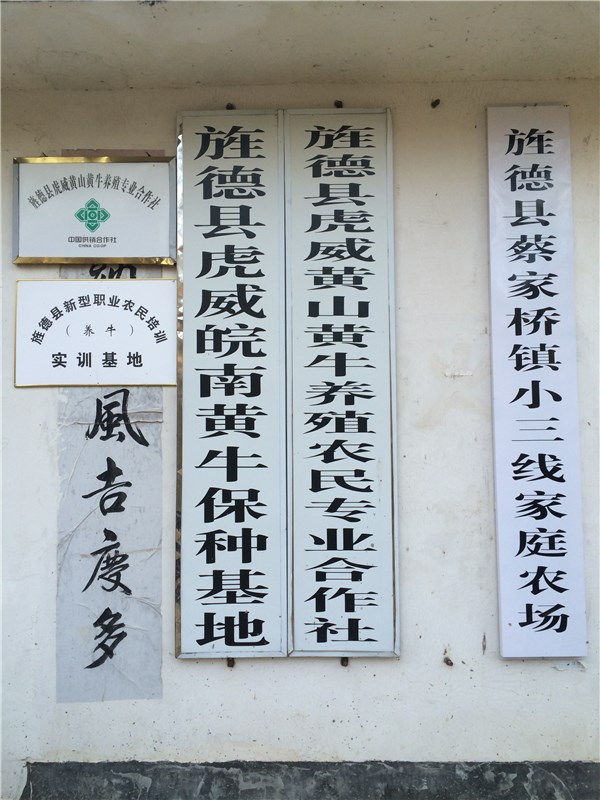 旌德县虎威黄山黄牛养殖专业合作社
中国供销合作社
CHINA CO-OP
旌德县新型职业农民培训
（养牛）
实训基地
風吉慶多
旌德县虎威皖南黄牛保种基地
旌德县虎威黄山黄牛养殖农民专业合作社
旌德县蔡家桥镇小三线家庭农场